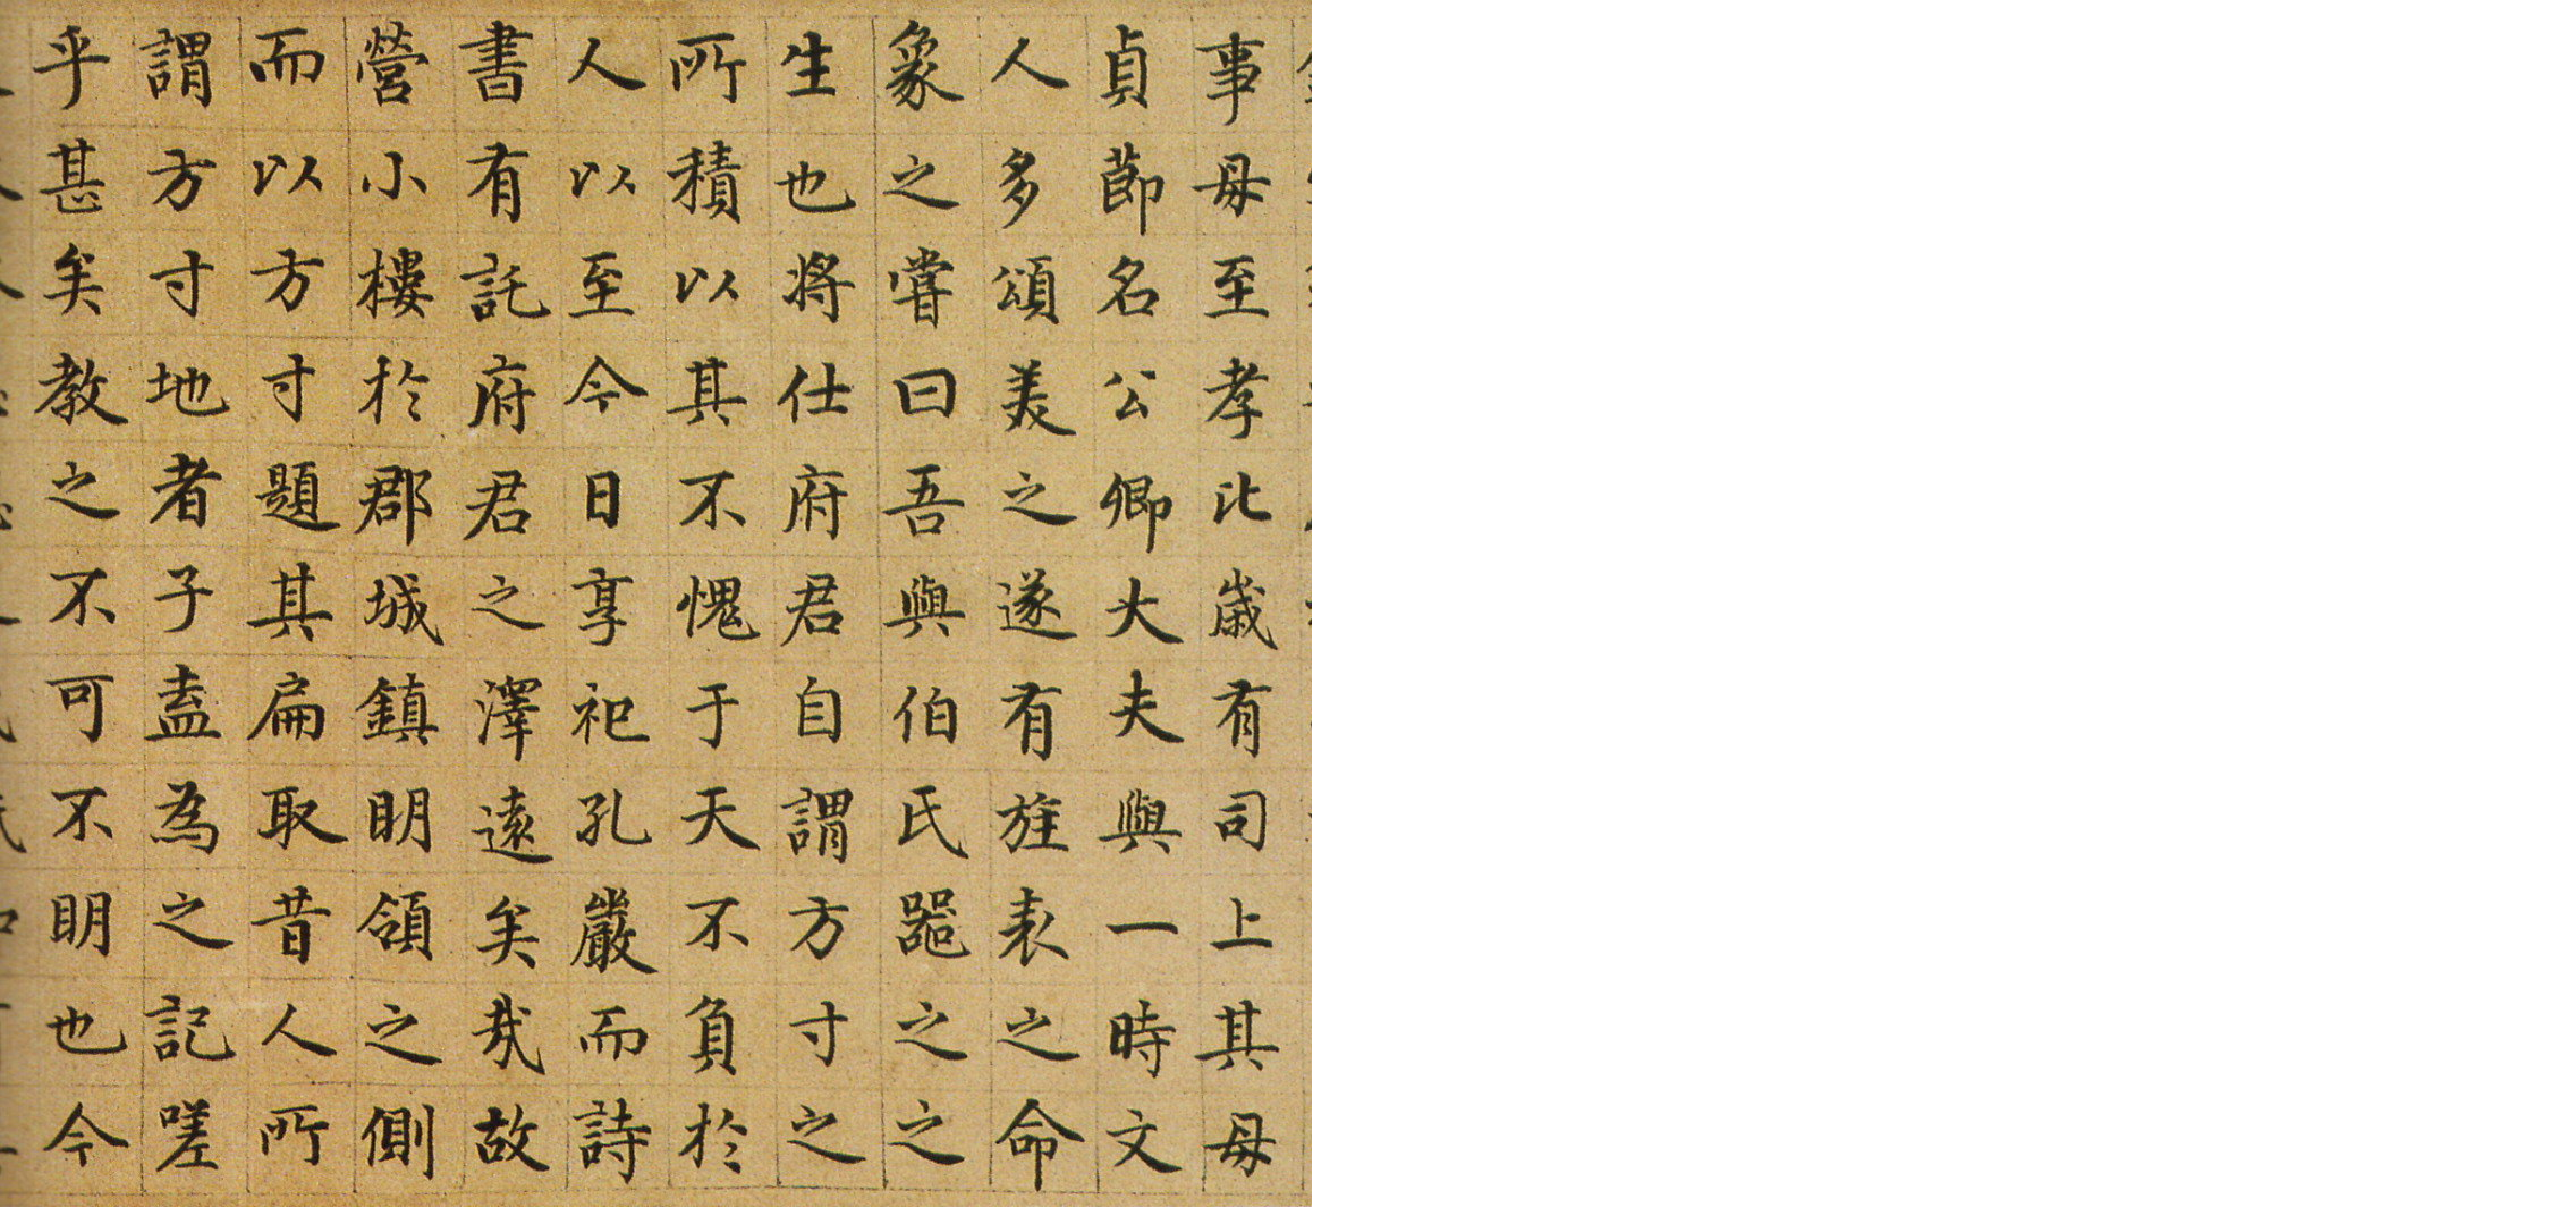 事母至孝比歲有司上其母
貞節名公卿大夫與一時文
人多頌美之遂有旌表之命
象之嘗曰吾與伯氏器之之
生也將仕府君自謂方寸之
所積以其不愧于天不負於
人以至今日享祀孔嚴而詩
書有託府君之澤遠矣哉故
營小樓於郡城鎮明領之側
而以方寸題其扁取昔人所
謂方寸地者子盍為之記嗟
乎甚矣教之不可不明也今